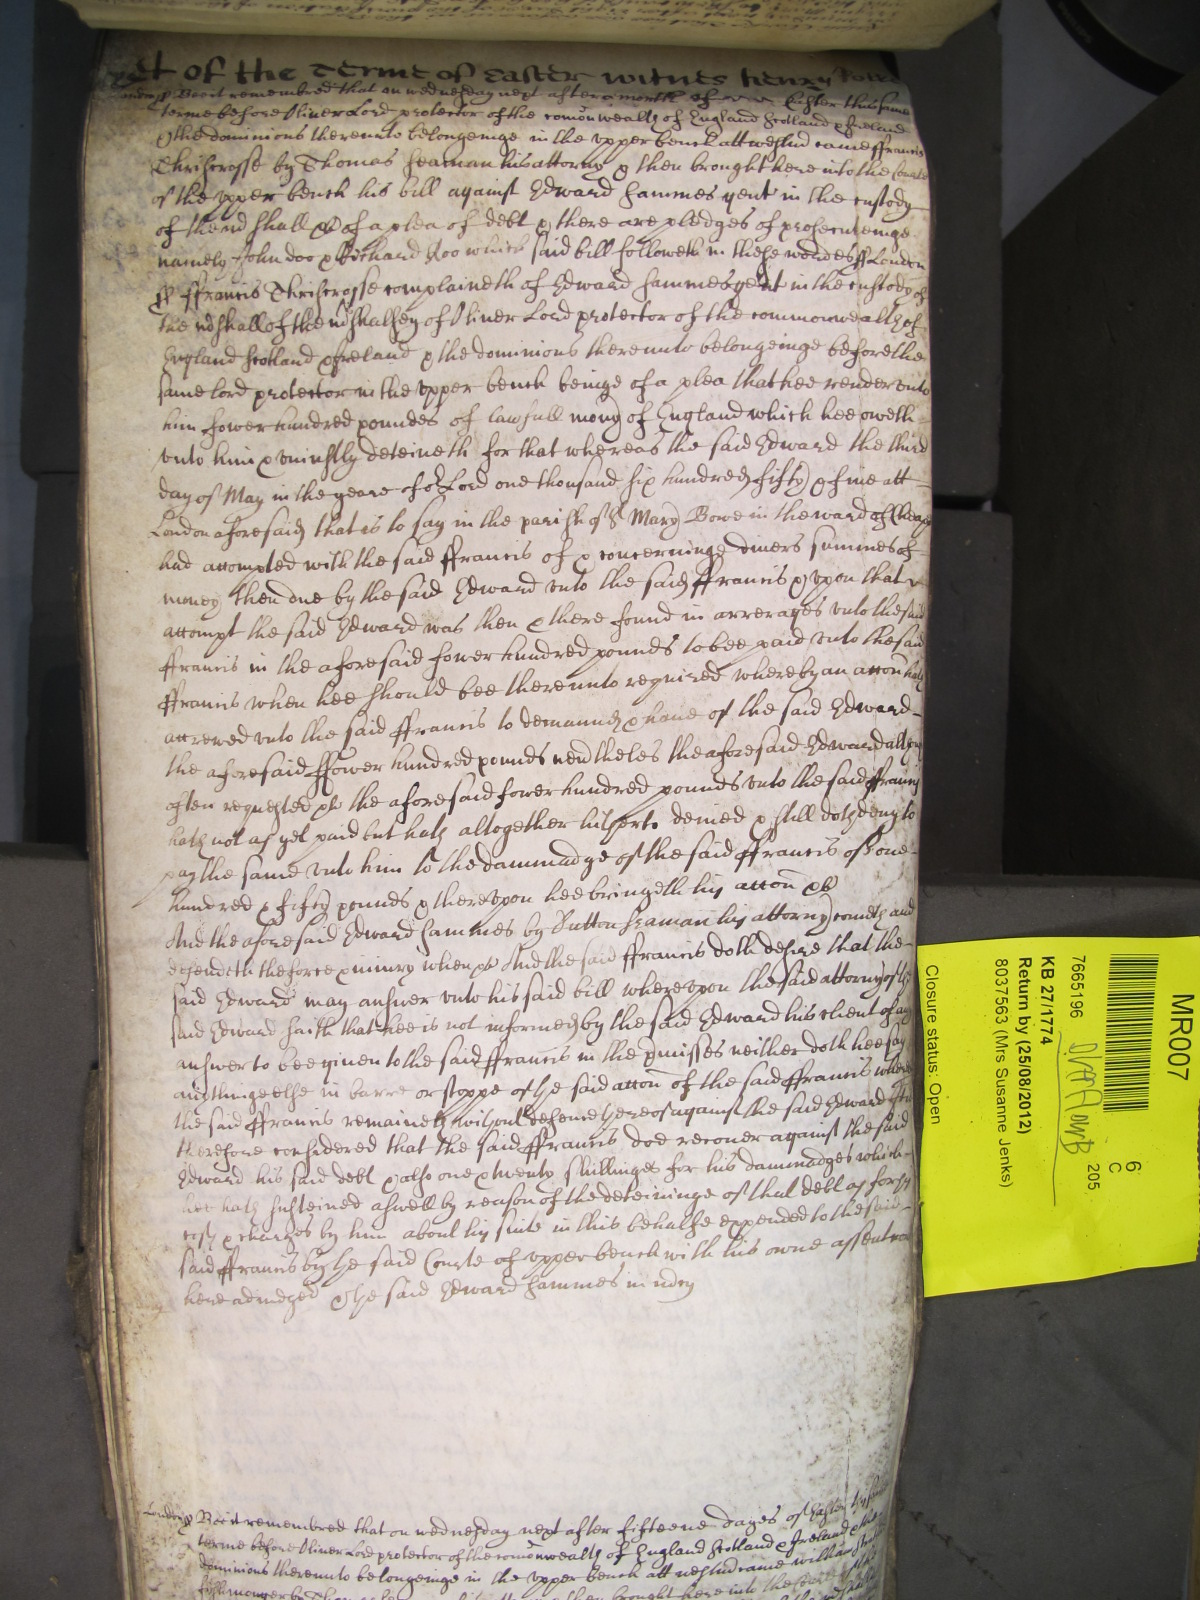 yet of the Terme of Easter witnes henry Rolle
London ss Bee it remembred that on wednesday next after a month of Easter this same
terme before Oliver Lord protector of the comonwealth of England Scotland & Ireland
& the dominions thereunto belongeinge in the upper bench att westm came ffrancis
Thriscrosse by Thomas Seaman his attorny & then brought here into the Courte
of the upper bench his bill against Edward hammes gent in the custody
of the mshall &c of a plea of debt & there are pledges of prosecuteinge
namely John doo & Richard Roo which said bill followeth in these wordes ss London
ss ffrancis Thriscrosse complaineth of Edward hammes gent in the custody of
the mshall of the mshalsey of Oliver Lord protector of the commonwealth of
England Scotland & Ireland & the dominions thereunto belongeinge before the
same lord protector in the upper bench beinge of a plea that hee render unto
him fower hundred poundes of lawfull mony of England which hee oweth
unto him & uniustly deteineth for that whereas the said Edward the third
day of May in the yeare of or Lord one thousand six hundred fifty & five att
London aforesaid that is to say in the parish of St Mary Bowe in the ward of Cheap
had attompted with the said ffrancis of & concerninge divers summes of
money then due by the said Edward unto the said ffrancis & upon that
attompt the said Edward was then & there found in arrerages unto the said
ffrancis in the aforesaid fower hundred pounds to bee paid unto the said
ffrancis when hee should bee thereunto required whereby an accon hath
accrewed unto the said ffrancis to demaund & have of the said Edward
the aforesaid ffower hundred pounds nevtheles the aforesaid Edward although
often requested &c the aforesaid fower hundred pounds unto the said ffrancis
hath not as yet paid but hath altogether hitherto denied & still doth deny to
pay the same unto him to the dammadge of the said ffrancis of one
hundred & fifty pounds & thereupon hee bringeth his accon &c
And the aforesaid Edward hammes by Dutton Seaman his attorny cometh and
defendeth the force & iniury when &c And the said ffrancis doth desire that the
said Edward may answer unto his said bill whereupon the said attorny of the
said Edward saith that hee is not informed by the said Edward his client of any
answer to bee given to the said ffrancis in the pmisses neither doth hee say
anythinge else in barre or stoppe of the said accon of the said ffrancis whereby
the said ffrancis remaineth without defence thereof against the said Edward
therefore considered that the said ffrancis doe recover against the said
Edward his said debt & also one & twenty shillinges for his dammadges which
hee hath susteined aswell by reason of the deteininge of that debt as for his
costs & charges by him about his suite in this behalfe expended to the said
said ffrancis by the said Courte of upper bench with his owne assent
here adiudged & the said Edward hammes in mcy
London ss Bee it remembred that on wednesday next after fifteene dayes of Easter this same
terme before Oliver Lord protector of the comonwealth of England Scotland & Ireland & the
dominions thereunto belongeinge in the upper bench att westm came william
brought here into the Courte
MR007
6
C
7665196
205
KB 27/1774
Return by (25/08/2012)
8037563 (Mrs Susanne Jenks)
Closure status: Open